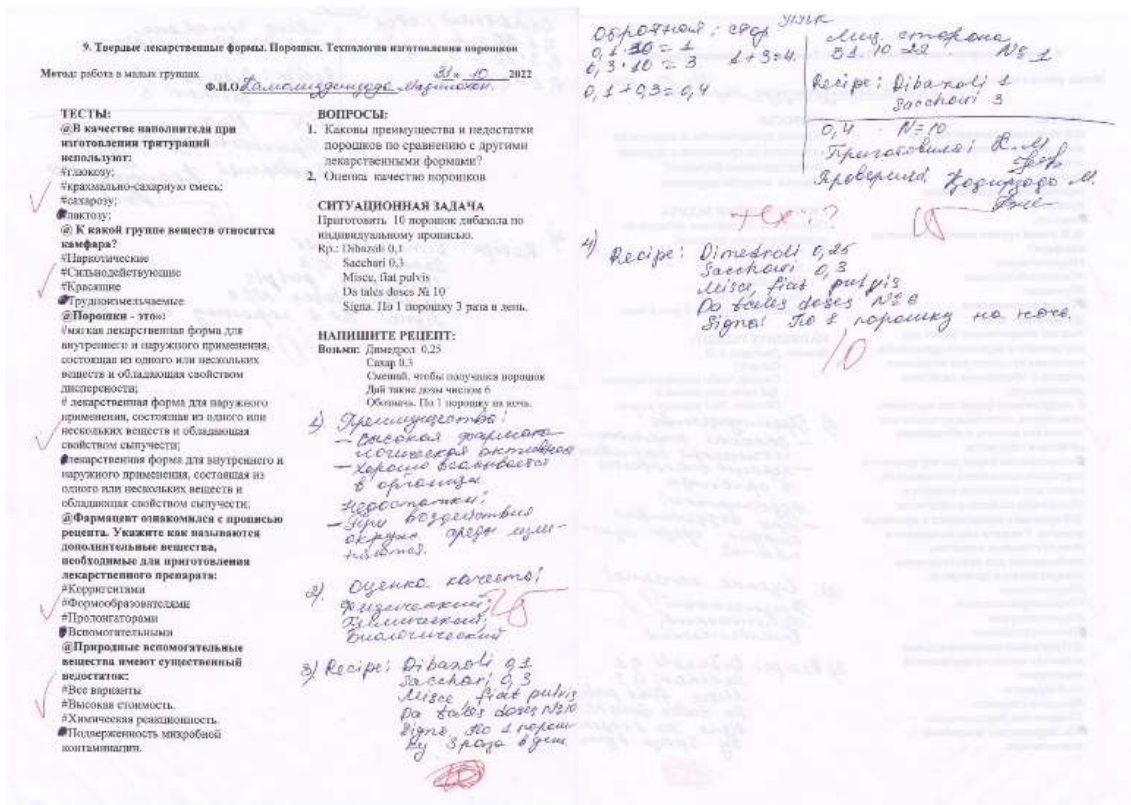 9. Твердые лекарственные формы. Порошки. Технология изготовления порошков
Метод: работа в малых группах
31 » 10 2022
Ф.И.О.
ТЕСТЫ:
@В качестве наполнителя при
изготовлении тритураций
используют:
#глюкозу;
#крахмально-сахарную смесь;
#сахарозу;
#лактозу;
@ К какой группе веществ относится
камфара?
#Наркотические
#Сильнодействующие
#Красящие
#Трудноизмельчаемые
@Порошки - это»:
#мягкая лекарственная форма для
внутреннего и наружного применения,
состоящая из одного или нескольких
веществ и обладающая свойством
дисперсности;
# лекарственная форма для наружного
применения, состоящая из одного или
нескольких веществ и обладающая
свойством сыпучести;
лекарственная форма для внутреннего и
наружного применения, состоящая из
одного или нескольких веществ и
обладающая свойством сыпучести;
@Фармацевт ознакомился с прописью
рецепта. Укажите как называются
дополнительные вещества,
необходимые для приготовления
лекарственного препарата:
#Корригентами
#Формообразователями
#Пролонгаторами
#Вспомогательными
@Природные вспомогательные
вещества имеют существенный
недостаток:
#Все варианты
#Высокая стоимость.
#Химическая реакционность.
#Подверженность микробной
контаминации.
ВОПРОСЫ:
1. Каковы преимущества и недостатки
порошков по сравнению с другими
лекарственными формами?
2. Оценка качество порошков
СИТУАЦИОННАЯ ЗАДАЧА
Приготовить 10 порошок дибазола по
индивидуальному прописью.
Rp.: Dibazoli 0,1
Sacchari 0,3
Misce, fiat pulvis
Da tales doses № 10
Signa. По 1 порошку 3 раза в день.
НАПИШИТЕ РЕЦЕПТ:
Возьми: Димедрол 0,25
Сахар 0,3
Смешай, чтобы получился порошок
Дай такие дозы числом 6
Обозначь. По 1 порошку на ночь.
1) Преимущества:
– высокая фармако-
логическая активность
– хорошо всасывается
в организм
недостатки:
– При воздействия
окруж. среды изме-
няются.
2) Оценка качество:
Физический;
Химический;
Биологический
3) Recipe: Dibazoli 0,1
Sacchari 0,3
Misce, fiat pulvis
Da tales doses №10
Signa. По 1 порош-
ку 3 раза в день
10
Обротная: стор
0,1·10 = 1
0,3·10 = 3 1+3=4.
0,1+0,3=0,4
Лиц. сторона
31.10.22 № 1
Recipe: Dibazoli 1
Sacchari 3
0,4 N=10
Приготовила: К.М
Проверила: М.
тех:?
4) Recipe: Dimedroli 0,25
Sacchari 0,3
Misce, fiat pulvis
Da tales doses №6
Signa: По 1 порошку на ночь.
10